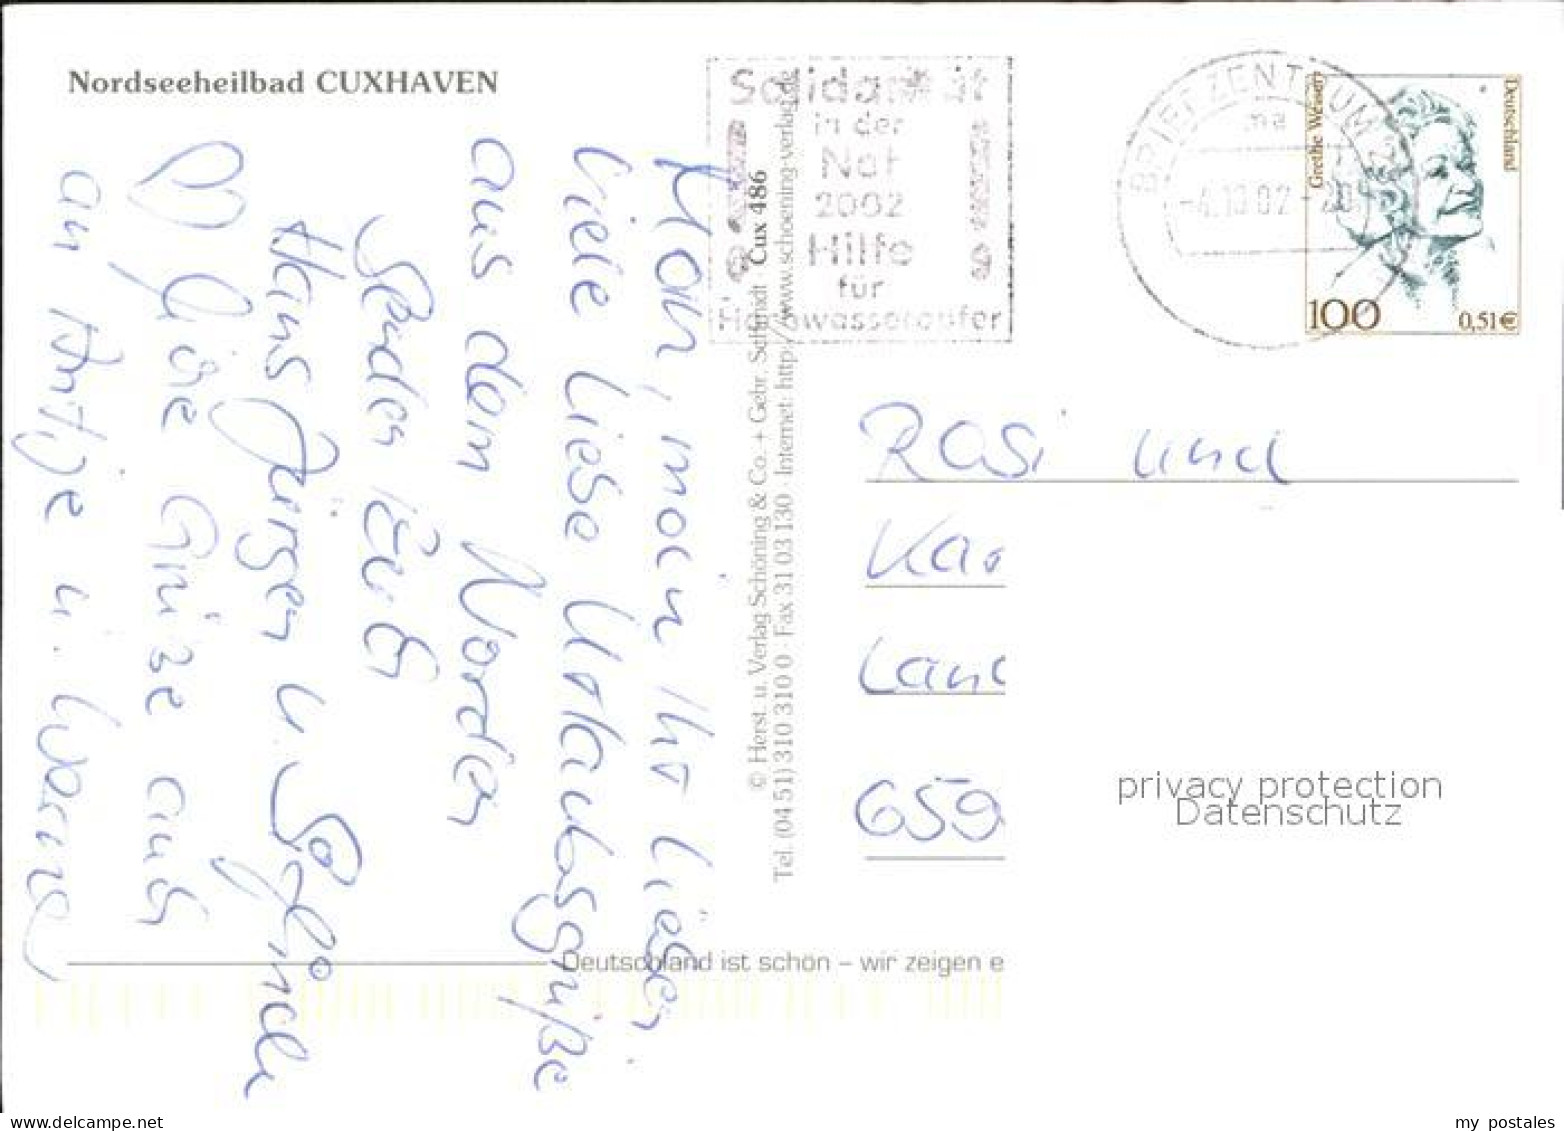 Nordseeheilbad CUXHAVEN
Moin, moin Ihr Lieben
Viele liebe Urlaubsgrüße
aus dem Norden
senden Euch
Hans Jürgen u.
Liebe Grüße auch
an Antje u.
© Herst. u. Verlag Schöning & Co. + Gebr. Schmidt · Cux 486
Tel. (04 51) 310 310 0 · Fax 31 03 130 · Internet: http://www.schoening-verlag.de
Solidarität
in der
Not
2002
Hilfe
für
Hochwasseropfer
BRIEFZENTRUM
-4.10.02-20
Grethe Weiser
Deutschland
100
0,51€
Rosi und
Ka
Lan
659
privacy protection
Datenschutz
Deutschland ist schön – wir zeigen e
delcampe.net
my postales